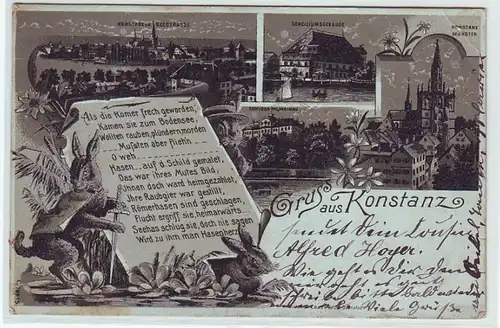 KONSTANZ v. SEESTRASSE
CONCILIUMSGEBÄUDE
KONSTANZ
MÜNSTER
SCHLOSS MAINAU
Als die Römer frech geworden,
Kamen sie zum Bodensee,
Wollten rauben, plündern, morden
Mußten aber fliehn
O weh
Hasen auf d. Schild gemalet,
Das war ihres Mutes Bild,
Ihnen doch ward heimgezahlet,
Ihre Raubgier war gestillt,
Römerhasen sind geschlagen,
Flucht ergriff sie, heimatwärts.
Seehas schlug sie, doch nie sagen
Wird zu ihm man Hasenherz.
Gruß aus Konstanz
sendet Dein Cousin
Alfred Hoger.
Wie geht es Dir den
es geht
bitte bald wieder
Viele Grüße